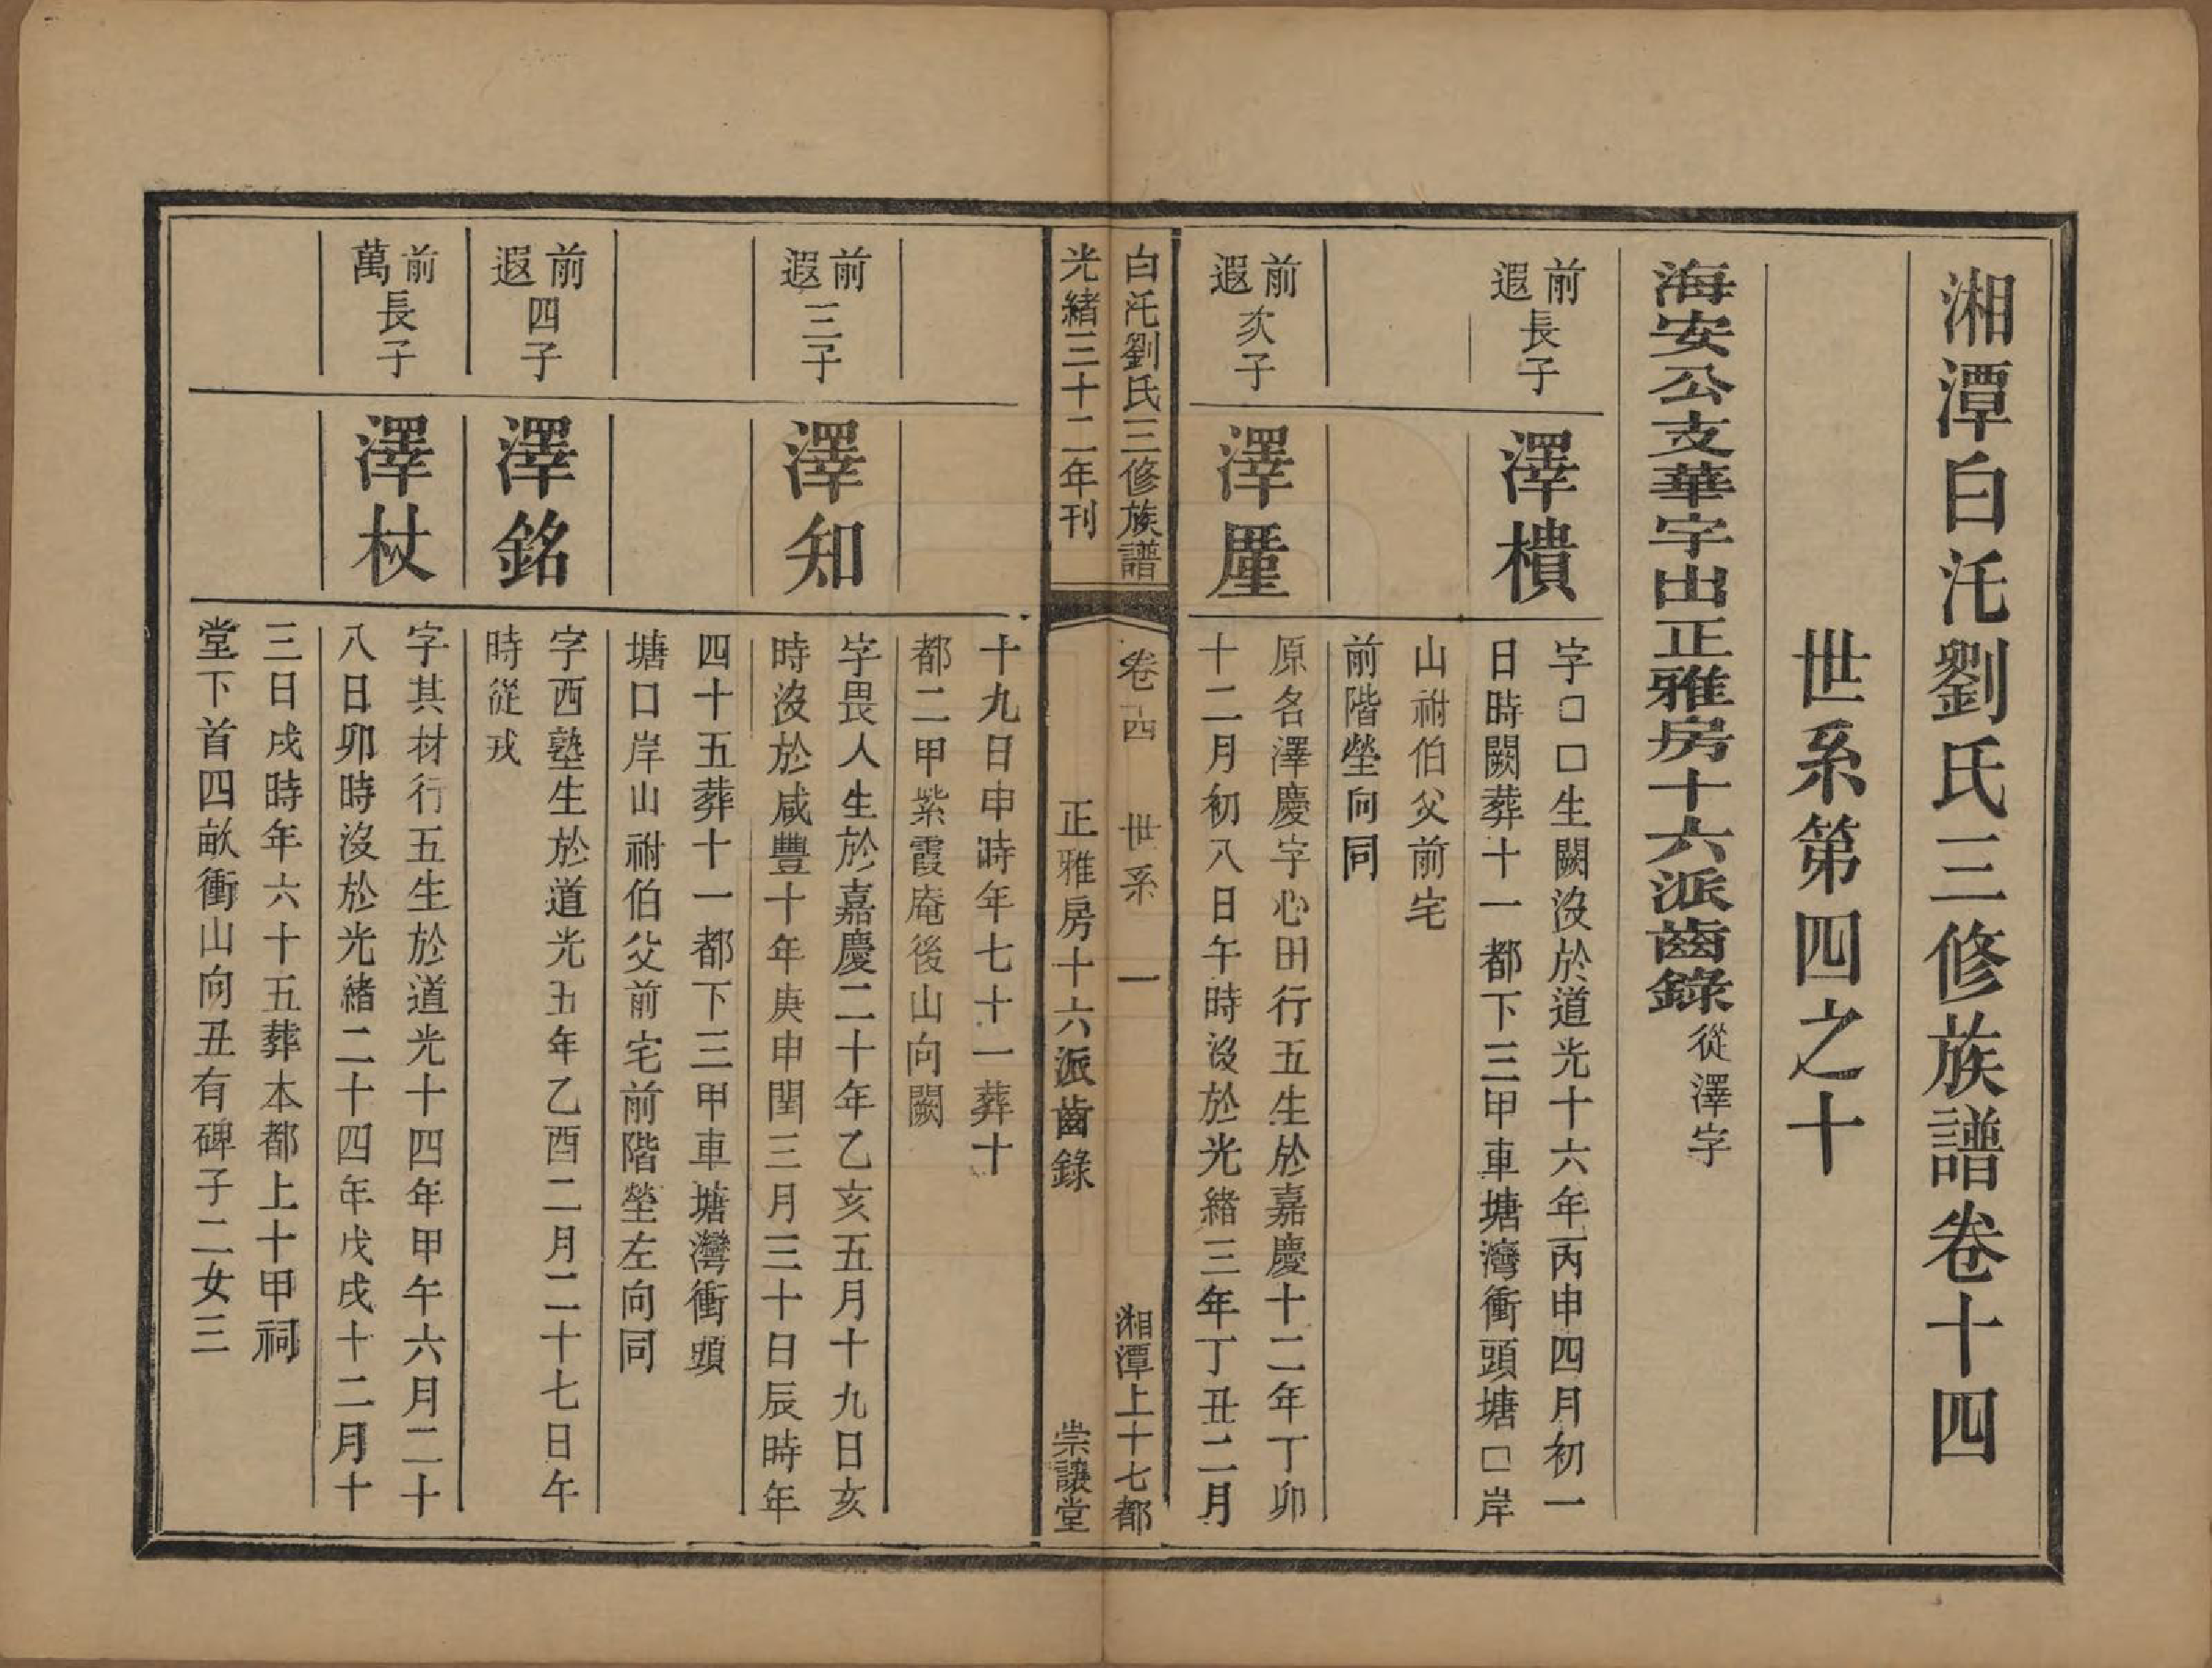 湘潭白汑劉氏三修族譜卷十四
世系第四之十
海安公支華字出正雅房十六派齒錄從澤字
前遐長子
澤樻
字□□生闕沒於道光十六年丙申四月初一
日時闕葬十一都下三甲車塘灣衝頭塘□岸
山祔伯父前宅
前階塋向同
前遐次子
澤㕓
原名澤慶字心田行五生於嘉慶十二年丁卯
十二月初八日午時沒於光緒三年丁丑二月
白汑劉氏三修族譜
卷十四
世系
一
湘潭上十七都
光緒三十二年刊
正雅房十六派齒錄
崇讓堂
十九日申時年七十一葬十
都二甲紫霞庵後山向闕
前遐三子
澤知
字畏人生於嘉慶二十年乙亥五月十九日亥
時沒於咸豐十年庚申閏三月三十日辰時年
四十五葬十一都下三甲車塘灣衝頭
塘口岸山祔伯父前宅前階塋左向同
前遐四子
澤銘
字西塾生於道光五年乙酉二月二十七日午
時從戎
前萬長子
澤杖
字其材行五生於道光十四年甲午六月二十
八日卯時沒於光緒二十四年戊戌十二月十
三日戌時年六十五葬本都上十甲祠
堂下首四畝衝山向丑有碑子二女三